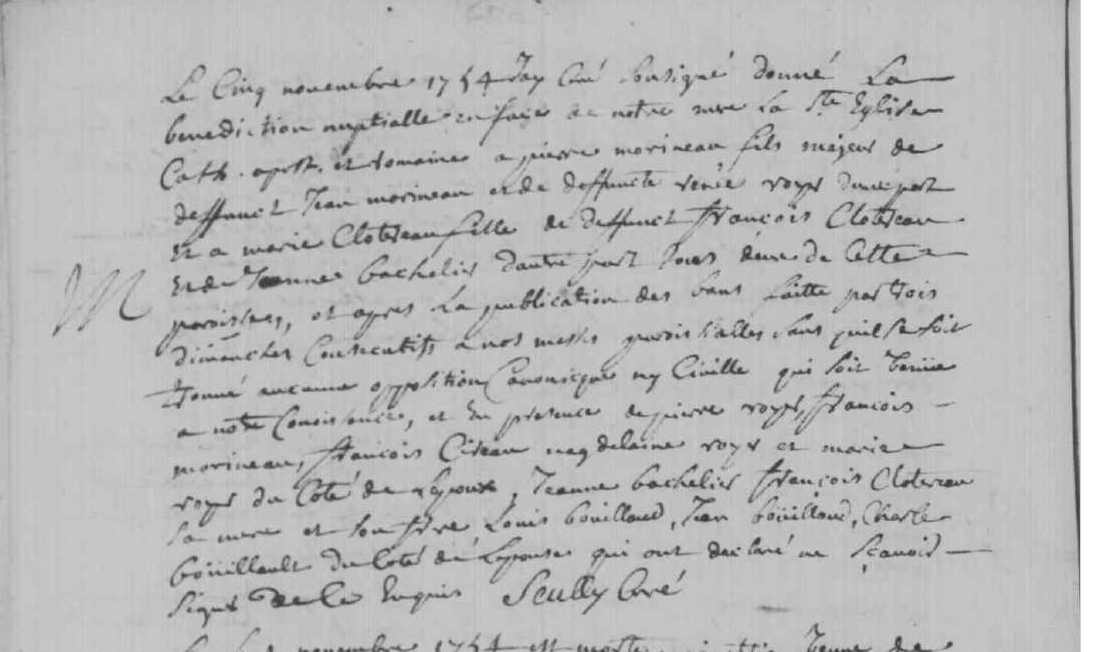 Le Cinq novembre 1754 Jay Curé sousigné donné La
benediction nuptialle en face de notre mere La Ste Eglise
Cath. apost. et romaine a pierre morineau fils majeur de
deffunct Jean morineau et de deffuncte renée roys dune part
Et a marie Clotereau fille de deffunct françois Clotereau
Et de Jeanne bachelier dautre part tous deux de Cette
paroisse, et apres La publication des bans faitte par trois
dimanches Consecutifs a nos messes paroissialles sans quil se soit
trouvé aucune opposition Canonique ny Civille qui soit venüe
a notre Conoissance, et En presence de pierre roys, françois
morineau, françois magdelaine roys et marie
roys du Coté de Lepoux, Jeanne bachelier françois Clotereau
Sa mere et son frere Louis boüillaud, Jean boüillaud, Charle
boüillault du Coté de Lepouse qui ont declaré ne sçavoir
signer de ce Enquis Scully Curé
M
novembre 1754 est morte